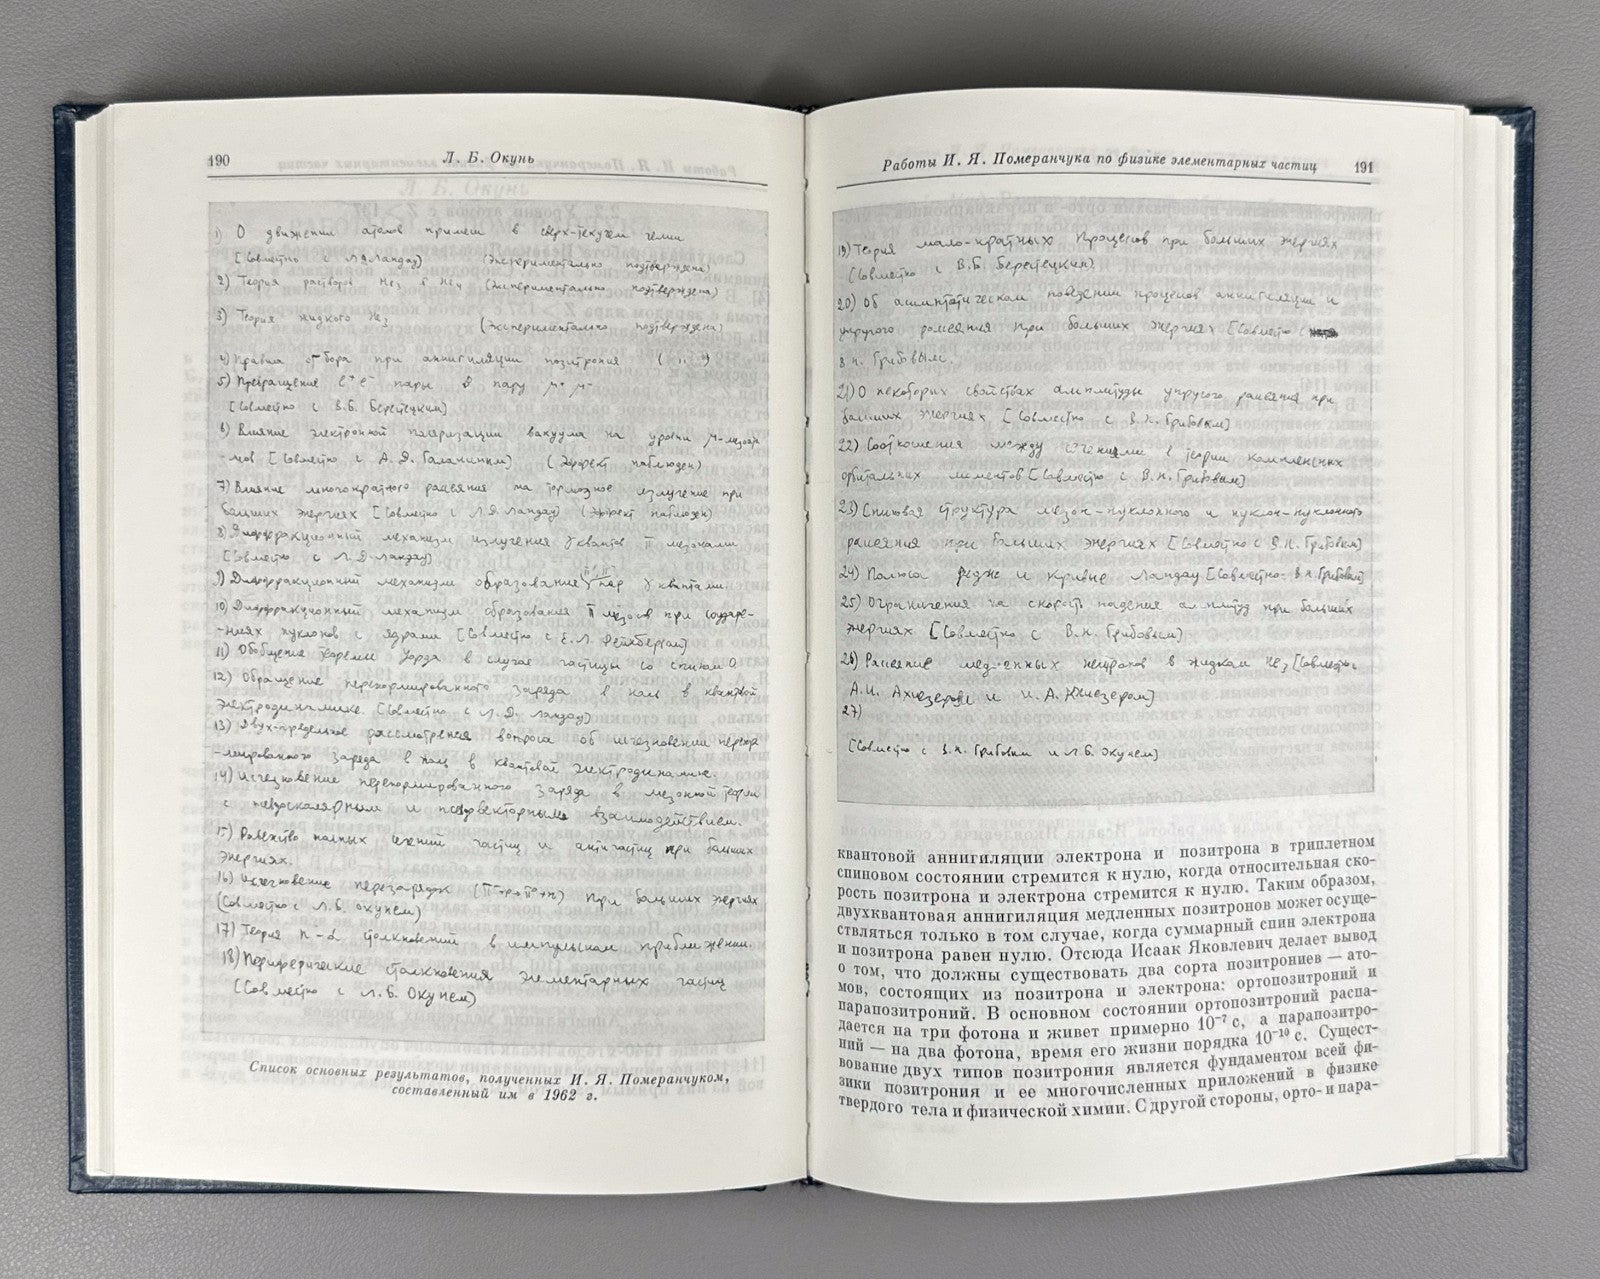 190
Л. Б. Окунь
1) О движении атомов примеси в сверх-текучем гелии
[Совместно с Л.Д. Ландау) (Экспериментально подтверждена)
2) Теория растворов He3 в He4 (экспериментально подтверждена)
3) Теория жидкого He3 (Экспериментально подтверждена)
4) Правила отбора при аннигиляции позитрония ( " " )
5) Превращение e+ e- пары в пару μ+ μ-
[Совместно с В.Б. Берестецким]
6) Влияние электронной поляризации вакуума на уровни μ-мезоа
-мов [Совместно с А. Д. Галаниным] (Эффект наблюден)
7) Влияние многократного рассеяния на тормозное излучение при
больших энергиях [Совместно с Л.Д. Ландау) (эффект наблюден)
8) Диффракционный механизм излучения γ квантов π мезонами
[Совместно с Л. Д. Ландау)
9) Диффракционный механизм образование пар γ квантами.
10) Диффракционный механизм образования π мезонов при соударе-
-ниях нуклонов с ядрами [Совместно с Е. Л. Фейнбергом]
11) Обобщение теоремы Уорда в случае частицы со спином 0
12) Обращение перенормированного заряда в ноль в квантовой
электродинамике. [Совместно с Л. Д. Ландау)
13) Двух-предельное рассмотрения вопроса об исчезновении перенор
-мированного заряда в ноль в квантовой электродинамике.
14) Исчезновение перенормированного заряда в мезонной теории
с псевдоскалярным и псевдовекторным взаимодействием.
15) Равенство полных сечений частиц и античастиц при больших
энергиях.
16) Исчезновение перезарядки (π-+p→π°+n) при больших энергиях
(Совместно с Л. Б. Окунем)
17) Теория n-d столкновений в импульсном приближении.
18) Периферические столкновения элементарных частиц
[Совместно с Л. Б. Окунем)
Список основных результатов, полученных И. Я. Померанчуком,
составленный им в 1962 г.
Работы И. Я. Померанчука по физике элементарных частиц
191
19) Теория мало-кратных процессов при больших энергиях
[Совместно с В.Б. Берестецким)
20) Об асимптотическом поведении процессов аннигиляции и
упругого рассеяния при больших энергиях [Совместно с
В. Н. Грибовым.
21) О некоторых свойствах амплитуды упругого рассеяния при
больших энергиях [Совместно с В. Н. Грибовым]
22) Соотношения между сечениями в теории комплексных
орбитальных моментов [Совместно с В. Н. Грибовым]
23) Спиновая структура мезон-нуклонного и нуклон-нуклонного
рассеяния при больших энергиях [Совместно с В. Н. Грибовым]
24) Полюса Редже и кривые Ландау [Совместно. В Н. Грибовым]
25) Ограничения на скорость падения амплитуд при больших
энергиях [Совместно с В. Н. Грибовым]
26) Рассеяние медленных нейтронов в жидком He3 [Совместно с
А.И. Ахиезером и И. А. Ахиезером]
27)
[Совместно с В. Н. Грибовым и Л Б. Окунем]
квантовой аннигиляции электрона и позитрона в триплетном
спиновом состоянии стремится к нулю, когда относительная ско-
рость позитрона и электрона стремится к нулю. Таким образом,
двухквантовая аннигиляция медленных позитронов может осуще-
ствляться только в том случае, когда суммарный спин электрона
и позитрона равен нулю. Отсюда Исаак Яковлевич делает вывод
о том, что должны существовать два сорта позитрониев — ато-
мов, состоящих из позитрона и электрона: ортопозитроний и
парапозитроний. В основном состоянии ортопозитроний распа-
дается на три фотона и живет примерно 10⁻⁷ с, а парапозитро-
ний — на два фотона, время его жизни порядка 10⁻¹⁰ с. Сущест-
вование двух типов позитрония является фундаментом всей фи-
зики позитрония и ее многочисленных приложений в физике
твердого тела и физической химии. С другой стороны, орто- и пара-